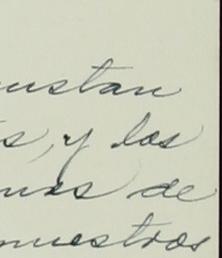 ustan
s, y los
mas de
nuestros